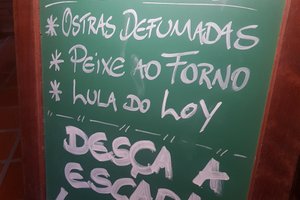 * OSTRAS DEFUMADAS
* PEIXE AO FORNO
* LULA DO LOY
DESÇA A